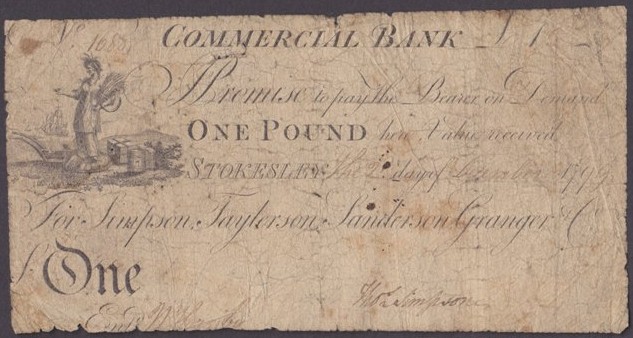 No. 1088 COMMERCIAL BANK £1
I Promise to pay the Bearer on Demand
ONE POUND here Value received
STOKESLEY the 2d. day of December 1799
For Simpson, Taylerson, Sanderson, Granger & Co.
£ One
Thos. Simpson
Entd.